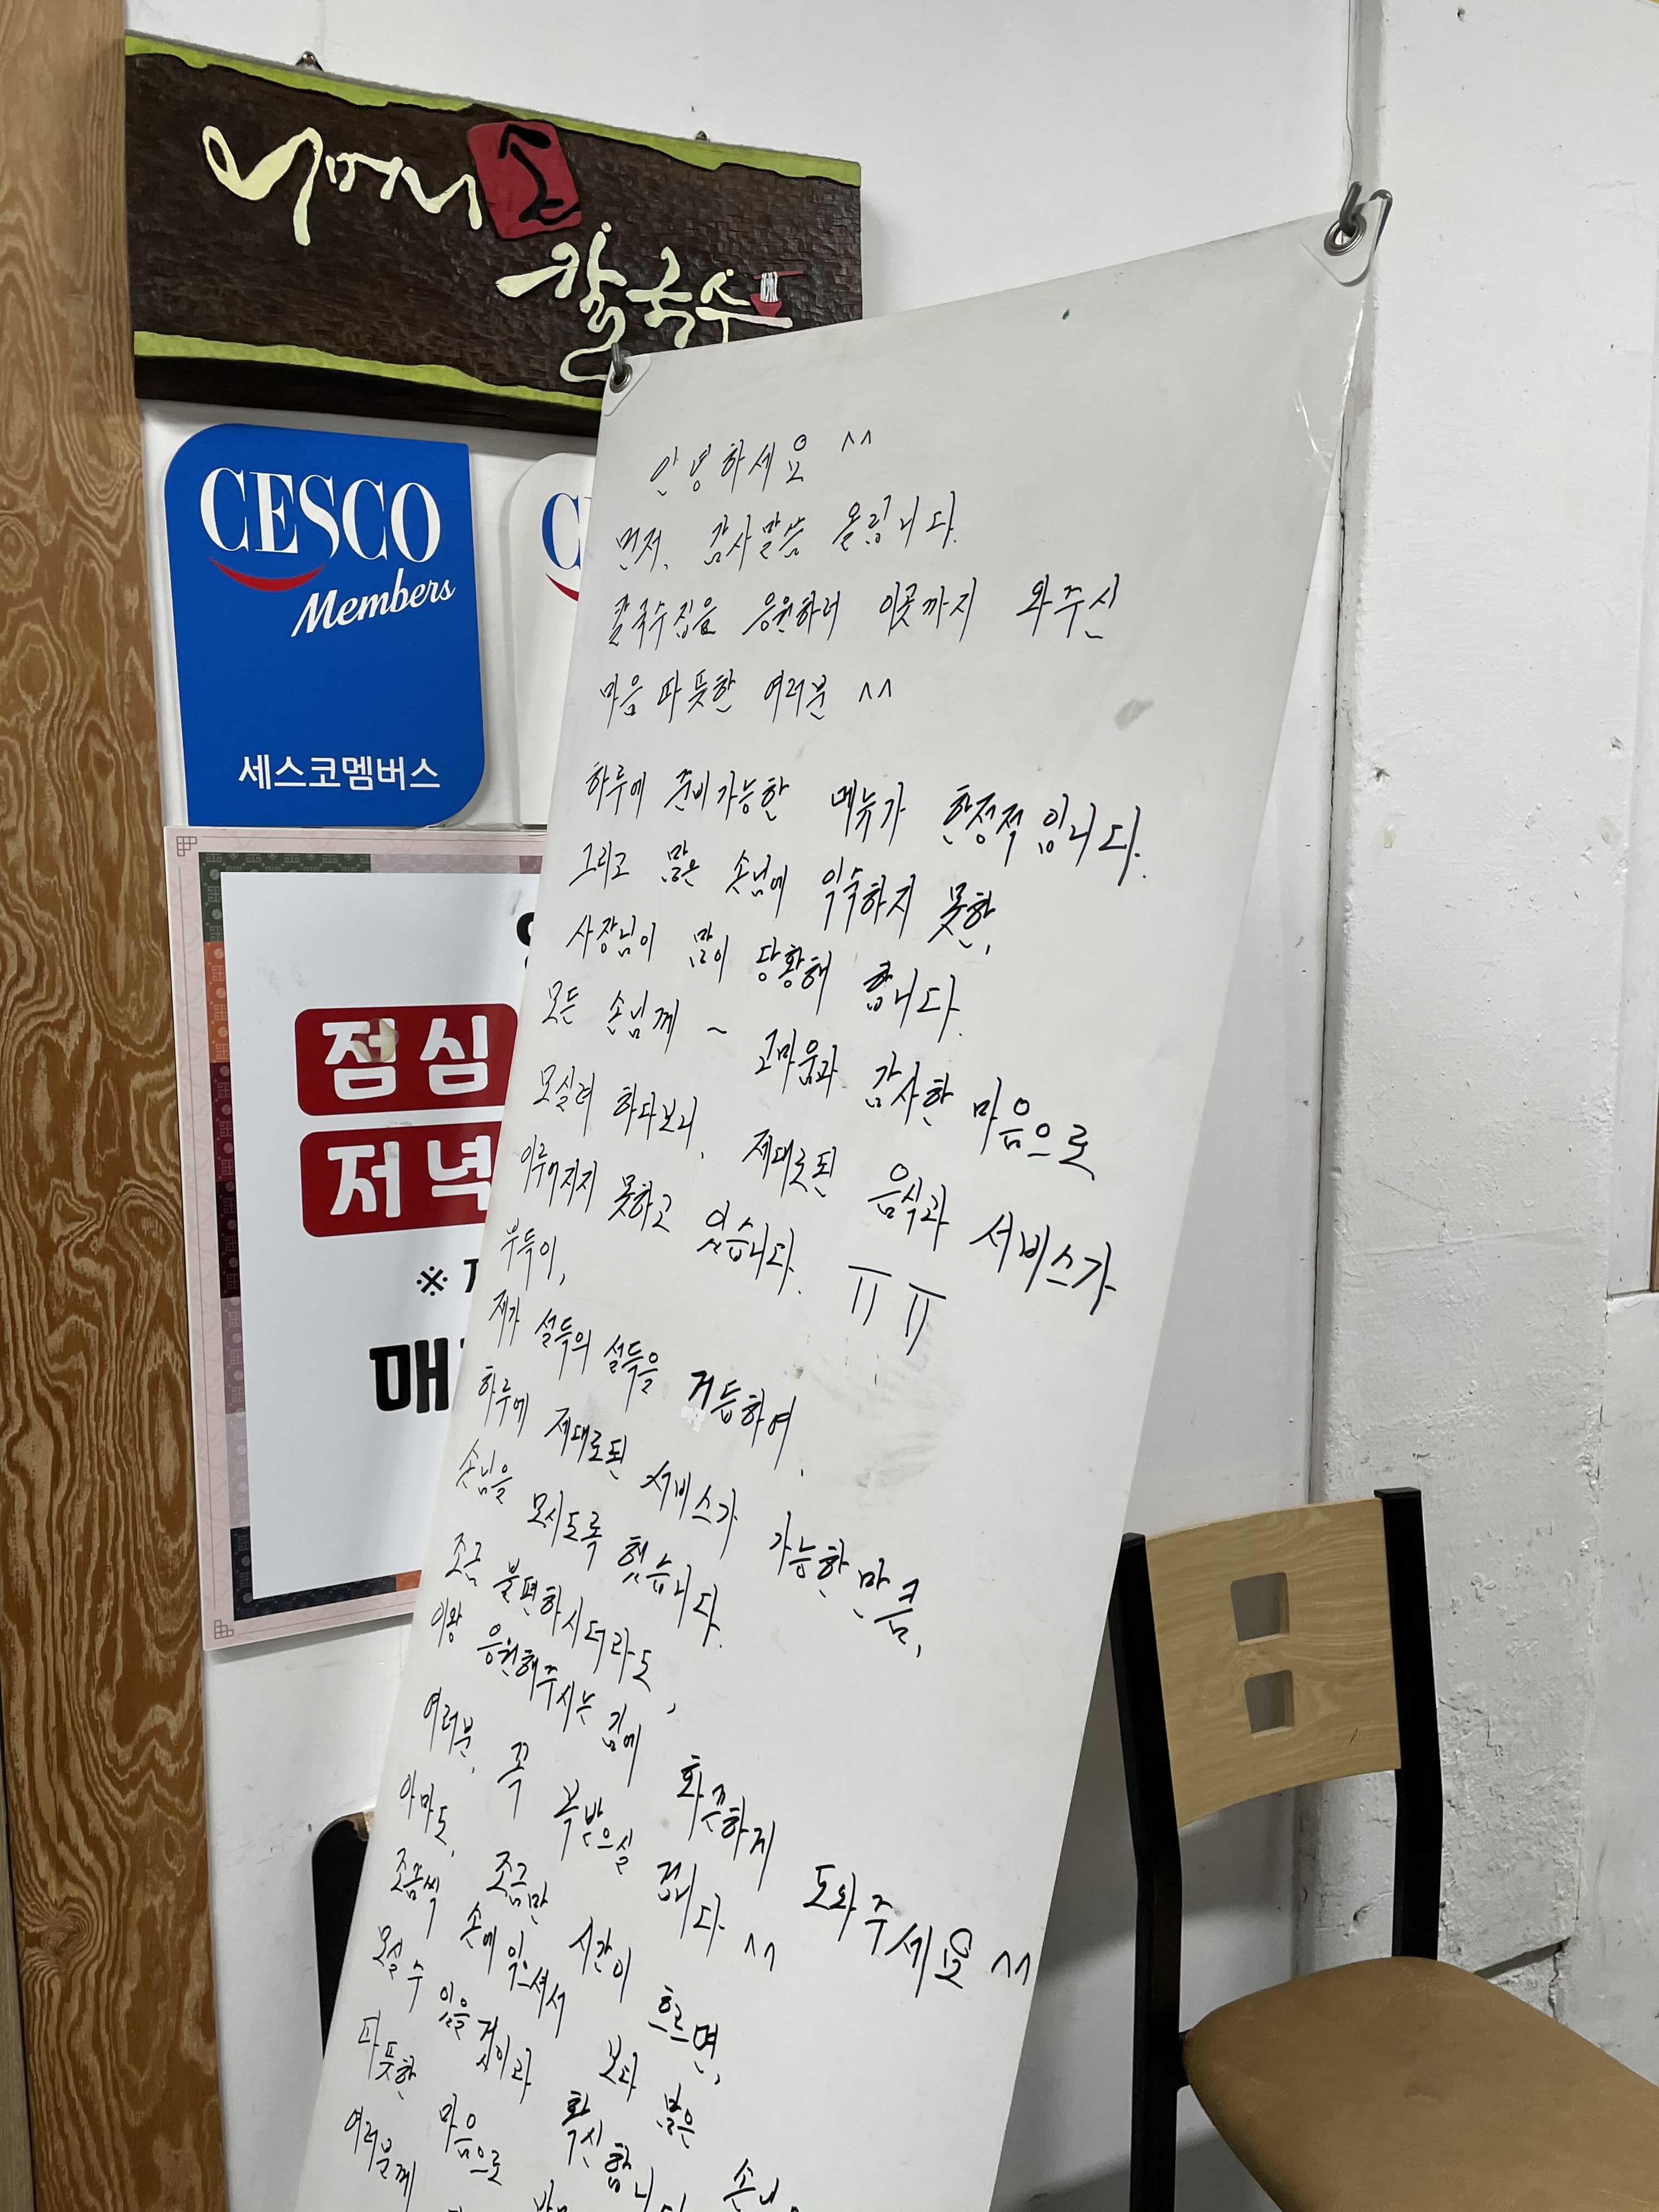 어머니 손
칼국수
CESCO
Members
세스코멤버스
C
점심
저녁
※
매
안녕하세요 ^^
먼저, 감사말씀 올립니다.
칼국수집을 응원하러 이곳까지 와주신
마음 따뜻한 여러분 ^^
하루에 준비가능한 메뉴가 한정적입니다.
그리고 많은 손님에 익숙하지 못한,
사장님이 많이 당황해 합니다.
모든 손님께 ~ 고마움과 감사한 마음으로
모실려 하다보니, 제대로된 음식과 서비스가
이루어지지 못하고 있습니다. ㅠㅠ
부득이,
제가 설득의 설득을 거듭하여,
하루에 제대로된 서비스가 가능한만큼,
손님을 모시도록 했습니다.
조금 불편하시더라도,
이왕 응원해주시는 김에 화끈하게 도와주세요 ^^
여러분, 꼭 복받으실 겁니다 ^^
아마도, 조금만 시간이 흐르면,
조금씩 손에 익으셔서 보다 많은
모실 수 있을 것이라 확신합니
따뜻한 마음으로
여러분께